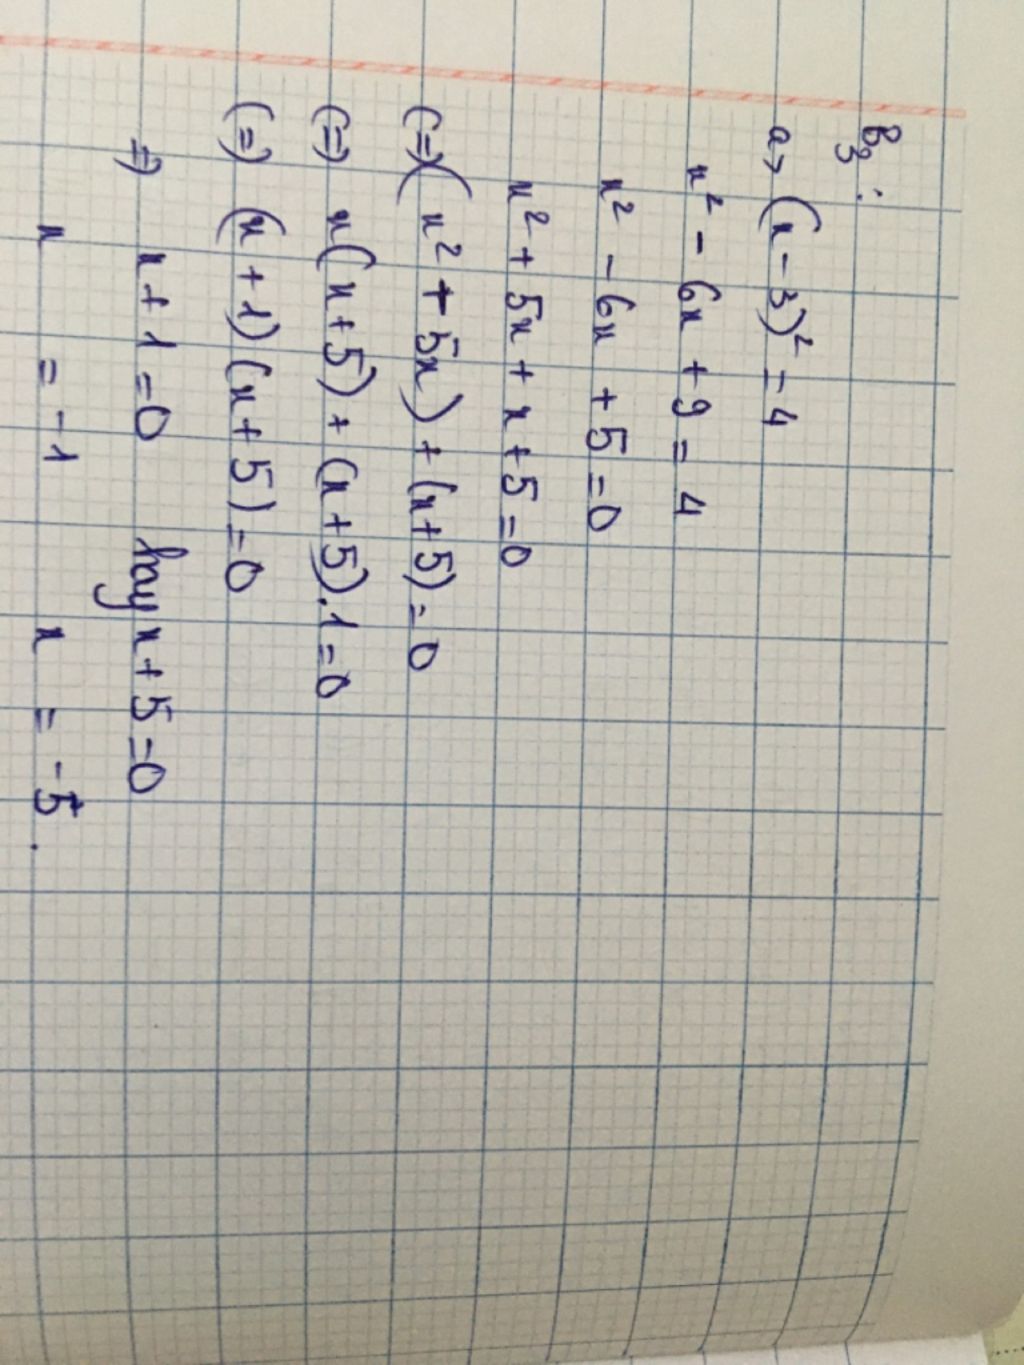 B3:
a, (x - 3)² = 4
x² - 6x + 9 = 4
x² - 6x + 5 = 0
x² + 5x + x + 5 = 0
(=) (x² + 5x) + (x + 5) = 0
(=) x(x + 5) + (x + 5).1 = 0
(=) (x + 1)(x + 5) = 0
=) x + 1 = 0 hay x + 5 = 0
x = -1 x = -5.